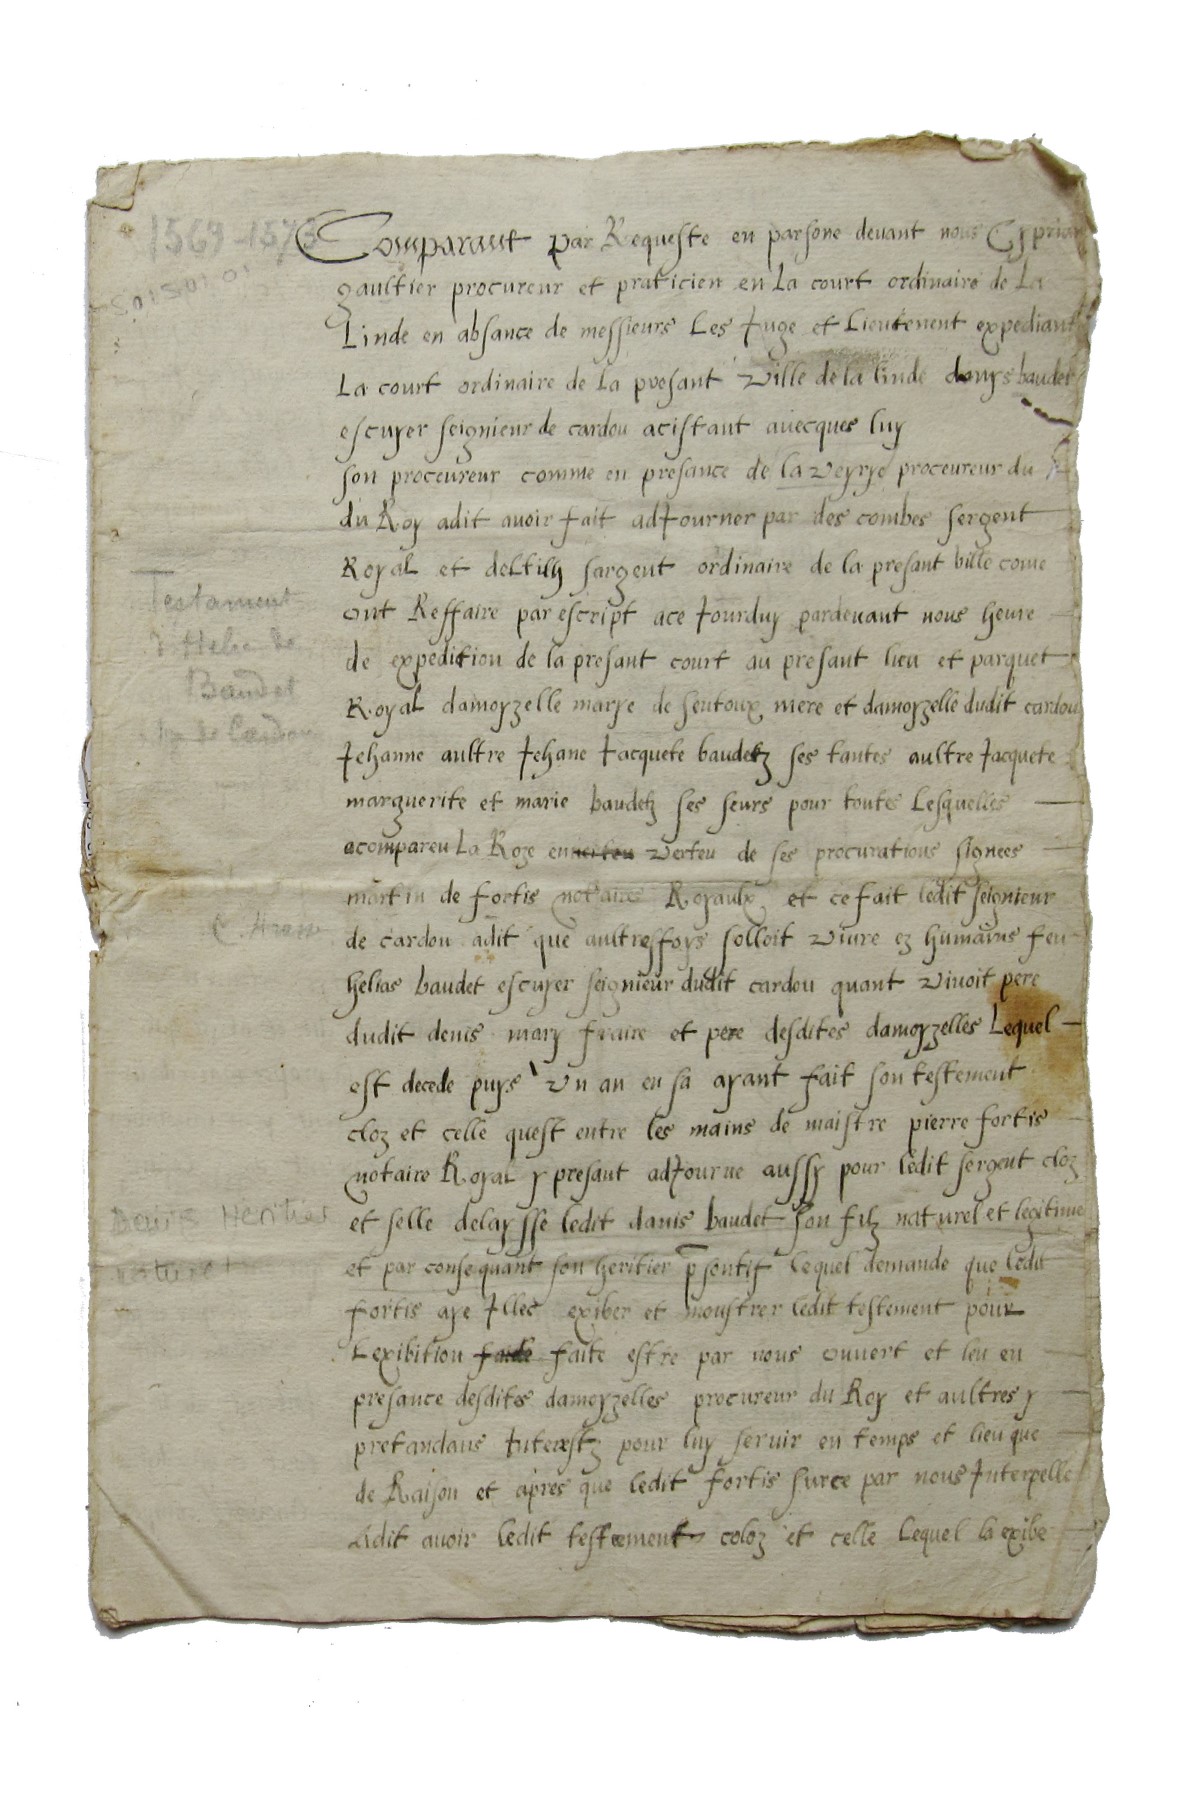 1569-1573
Comparant par Requeste en parsone devant nous Cyprian
gaultier procureur et praticien en La court ordinaire de La
Linde en absance de messieurs Les Juge et Lieutenent expediant
La court ordinaire de La presant ville de la linde denys baudet
escuyer seignieur de cardou acistant avecques luy
son procureur comme en presance de la veyrye procureur du
du Roy adit avoir fait adJourner par des combes sergent
Royal et deltilh sargent ordinaire de la presant ville come
ont Reffaire par escript ace Jourduy pardevant nous heure
de expedition de la presant court au presant lieu et parquet
Royal damoyzelle marye de sentoux mere et damoyzelle dudit cardou
Jehanne aultre Jehane Jacquete baudetz ses tantes aultre Jacquete
marguerite et marie baudetz ses seurs pour toutes Lesquelles
acompareu La Roze en verteu de ses procurations signees
martin de fortis notaire Royaulx et ce fait ledit seignieur
de cardou adit que aultreffoys solloit vivre ez humains feu
helias baudet escuyer seignieur dudit cardou quant vivoit pere
dudit denis mary fraire et pere desdites damoyzelles Lequel
est decede puys un an en sa ayant fait son testement
cloz et celle quest entre les mains de maistre pierre fortis
notaire Royal y presant adJourne aussy pour ledit sergent cloz
et selle delaysse ledit danis baudet son filz naturel et legitime
et par consequant son heritier psontif lequel demande que ledit
fortis aye Illec exiber et monstrer ledit testement pour
Lexibition faite estre par nous ouvert et leu en
presance desdites damoyzelles procureur du Roy et aultres y
pretandans Interestz pour luy servir en temps et lieu que
de Raison et apres que ledit fortis surce par nous Interpelle
Adit avoir ledit testement coloz et celle Lequel la exibe
Testament
d'Helie de
Baudet
sgr de Cardou
Denis Heritier
naturel